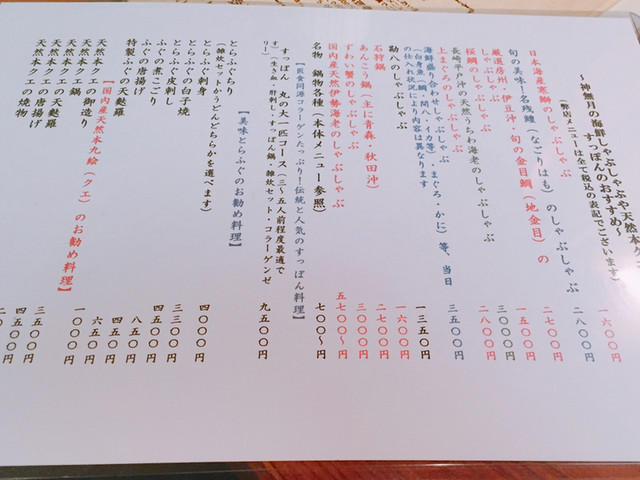 ～神無月の海鮮しゃぶしゃぶや天然本クエ
すっぽんのおすすめ～
（弊店メニューは全て税込の表記でございます）
日本海産寒鰤のしゃぶしゃぶ 一六〇〇円
旬の美味！名残鱧（なごりはも）のしゃぶしゃぶ 二八〇〇円
厳選房州・伊豆沖・旬の金目鯛（地金目）の
しゃぶしゃぶ 二七〇〇円
桜鯛のしゃぶしゃぶ 一五〇〇円
長崎平戸沖の天然うちわ海老のしゃぶしゃぶ 三〇〇〇円
上まぐろのしゃぶしゃぶ 二八〇〇円
海鮮盛り合わせしゃぶしゃぶ 三五〇〇円
（白身魚（鯛・間八・イカ等）・まぐろ・かに）等、当日
の仕入れ状況により内容は異なります
勘八のしゃぶしゃぶ 一三五〇円
石狩鍋 一六〇〇円
あんこう鍋（主に青森・秋田沖） 二七〇〇円
ずわい蟹のしゃぶしゃぶ 三〇〇〇円
国内産天然伊勢海老のしゃぶしゃぶ 五七〇〇～
名物 鍋物各種（本体メニュー参照） 七〇〇～円
【医食同源コラーゲンたっぷり！伝統と人気のすっぽん料理】
すっぽん 丸の大一匹コース（三～五人前程度最適で
す）（生き血・肝刺し・すっぽん鍋・雑炊セット・コラーゲンゼ
リー） 九五〇〇円
【美味とらふぐのお勧め料理】
とらふぐちり 四〇〇〇円
（雑炊セットかうどんどちらかを選べます）
とらふぐ刺身 三三〇〇円
とらふぐの白子焼
とらふぐ皮刺し
ふぐの煮こごり
ふぐの唐揚げ
特製ふぐの天麩羅
【国内産天然本九絵（クエ）のお勧め料理】
天然本クエの御造り
天然本クエ鍋
天然本クエの天麩羅
天然本クエの唐揚げ
天然本クエの焼物